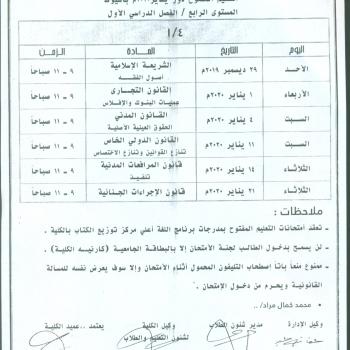 المستوى الرابع / الفصل الدراسي الأول
١/٤
اليوم التاريخ المادة الزمن
الأحد ٢٩ ديسمبر ٢٠١٩م الشريعة الإسلامية ٩ - ١١ صباحاً
أصول الفقه
الأربعاء ١ يناير ٢٠٢٠م القانون التجارى ٩ - ١١ صباحاً
عمليات البنوك والإفلاس
السبت ٤ يناير ٢٠٢٠م القانون المدني ٩ - ١١ صباحاً
الحقوق العينية الأصلية
السبت ١١ يناير ٢٠٢٠م القانون الدولي الخاص ٩ - ١١ صباحاً
تنازع القوانين وتنازع الاختصاص
الثلاثاء ١٤ يناير ٢٠٢٠م قانون المرافعات المدنية ٩ - ١١ صباحاً
تنفيذ
الثلاثاء ٢١ يناير ٢٠٢٠م قانون الإجراءات الجنائية ٩ - ١١ صباحاً
ملاحظات :
- تعقد امتحانات التعليم المفتوح بمدرجات برنامج اللغة أعلي مركز توزيع الكتاب بالكلية .
- لن يسمح بدخول الطالب لجنة الأمتحان إلا بالبطاقة الجامعية (كارنيه الكلية) .
- ممنوع منعاً باتاً إصطحاب التليفون المحمول أثناء الأمتحان وإلا سوف يعرض نفسه للمسالة
القانونية ويحرم من دخول الإمتحان .
محمد كمال مراد/..
وكيل الادارة مدير شئون الطلاب وكيل الكلية يعتمد ..عميد الكلية
لشئون التعليم والطلاب